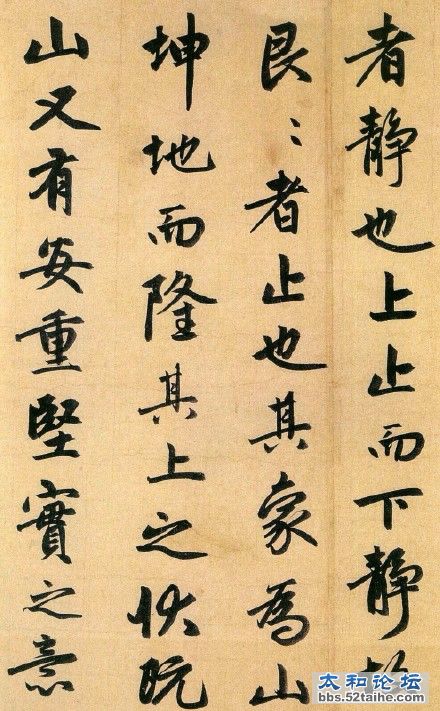 者静也上止而下静故
艮〻者止也其象為山
坤地而隆其上之状既
山又有安重堅實之意
太和论坛
bbs.52taihe.com